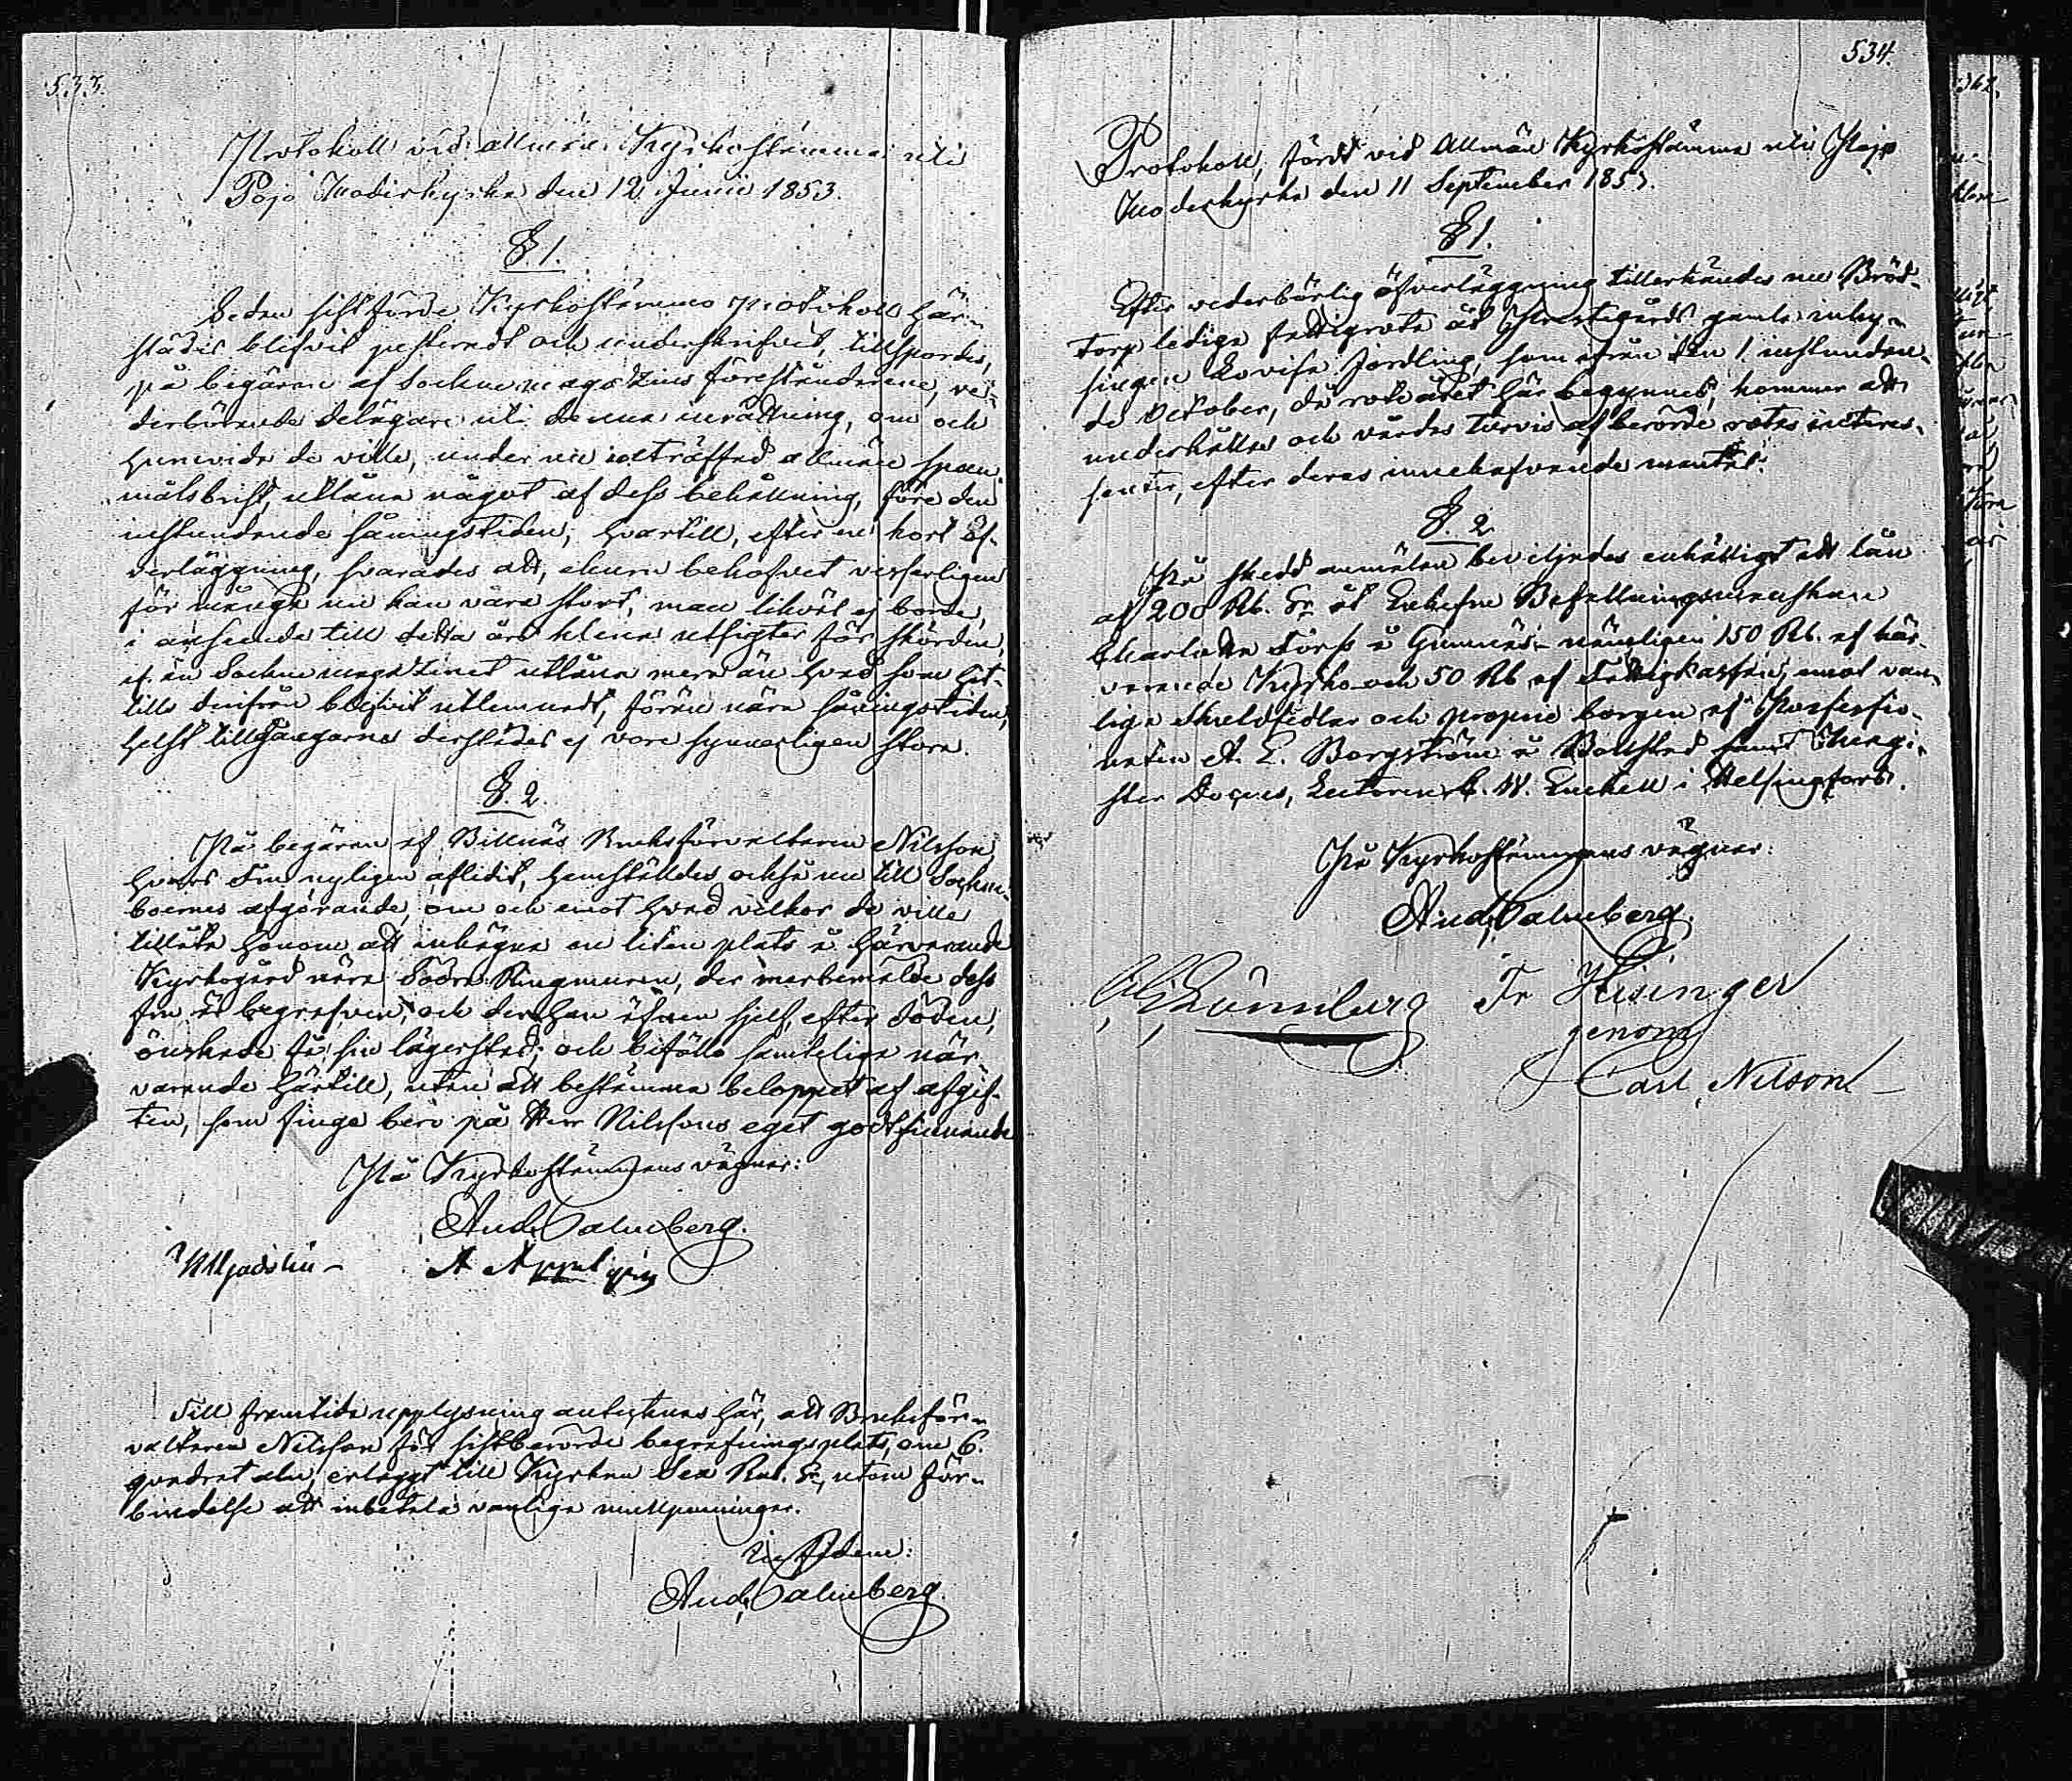 533.
Protokoll vid allmän Kyrkostämma uti
Pojo Moderkyrka den 12 Junii 1853.
§. 1.
Sedan sistförde Kyrkostämmo Protokoll här-
städes blifvit justeradt och underskrifvet, tillspordes,
på begäran af Sockne magazins föreståndarene, ve-
derbörande delägare uti denna inrättning, om och
huruvida de ville, under nu inträffad allmän span-
målsbrist, utlåna något af dess behållning, före den
instundande såningstiden; hvartill, efter en kort öf-
verläggning, svarades att, ehuru behofvet visserligen
för mången nu kan vara stort, man likväl ej borde,
i anseende till detta års klena utsigter för skörden,
ur Sockne magazinet utlåna mera än hvad som hit-
tills derifrån blifvit utlemnadt, förrän nära såningstiden,
helst tillgångarne derstädes ej voro synnerligen stora.
§. 2.
På begäran af Billnäs Bruksförvaltaren Nilsson
hvars Fru nyligen aflidit, hemställdes också nu till Sockne-
boernes afgörande, om och emot hvad vilkor de ville
tillåta honom att inhägna en liten plats å härvarande
Kyrkogård nära Södra Ringmuren, der merbemälde dess
fru är begrafven, och der han äfven sjelf, efter döden,
önskade få sin lägerstad; och biföllo samtelige när-
varande härtill, utan att bestämma beloppet af afgif-
ten, som finge bero på Herr Nilssons eget godtfinnande
På Kyrkostämmans vägnar:
And. Malmberg.
A Appelgren
Till framtida upplysning antecknas här, att Bruksför-
valtaren Nilsson för sistberörde begrafningsplats, om 6.
qvadrat aln, erlagt till Kyrkan Sex Rub. Sr, utom för-
bindelse att inbetala vanliga mullpenningar.
Ut supra:
And. Malmberg.
534.
Protokoll, fördt vid Allmän Kyrkostämma uti Pojo
Moderkyrka den 11 September 1853.
§ 1.
Efter vederbörlig öfverläggning tillerkändes nu Bröd-
torp lediga fattigrote åt Prestegårds gamla inhy-
singen Lovisa Jordling, som ifrån den 1 instundan-
de October, då roteåret här begynnes, kommer att
underhållas och vårdas turvis af berörde rotes intres-
senter, efter deras innehafvande mantal.
§. 2.
På skedd anmälan beviljades enhälligt ett lån
af 200 Rb. Sr åt Enkefru Befallningsmanskan
Charlotta Forss å Gunnäs – nämligen 150 Rb. af här-
varande Kyrko- och 50 Rb af Fattigkassan, emot van-
liga Skuldsedlar och proprie borgen af Possessio-
naten A. L. Borgström å Bollstad samt Magi-
ster Docens, Lectoren C. W. Enckell i Helsingfors.
På Kyrkostämmans vägnar:
And. Malmberg.
Fr Hisinger
genom
Carl Nilson